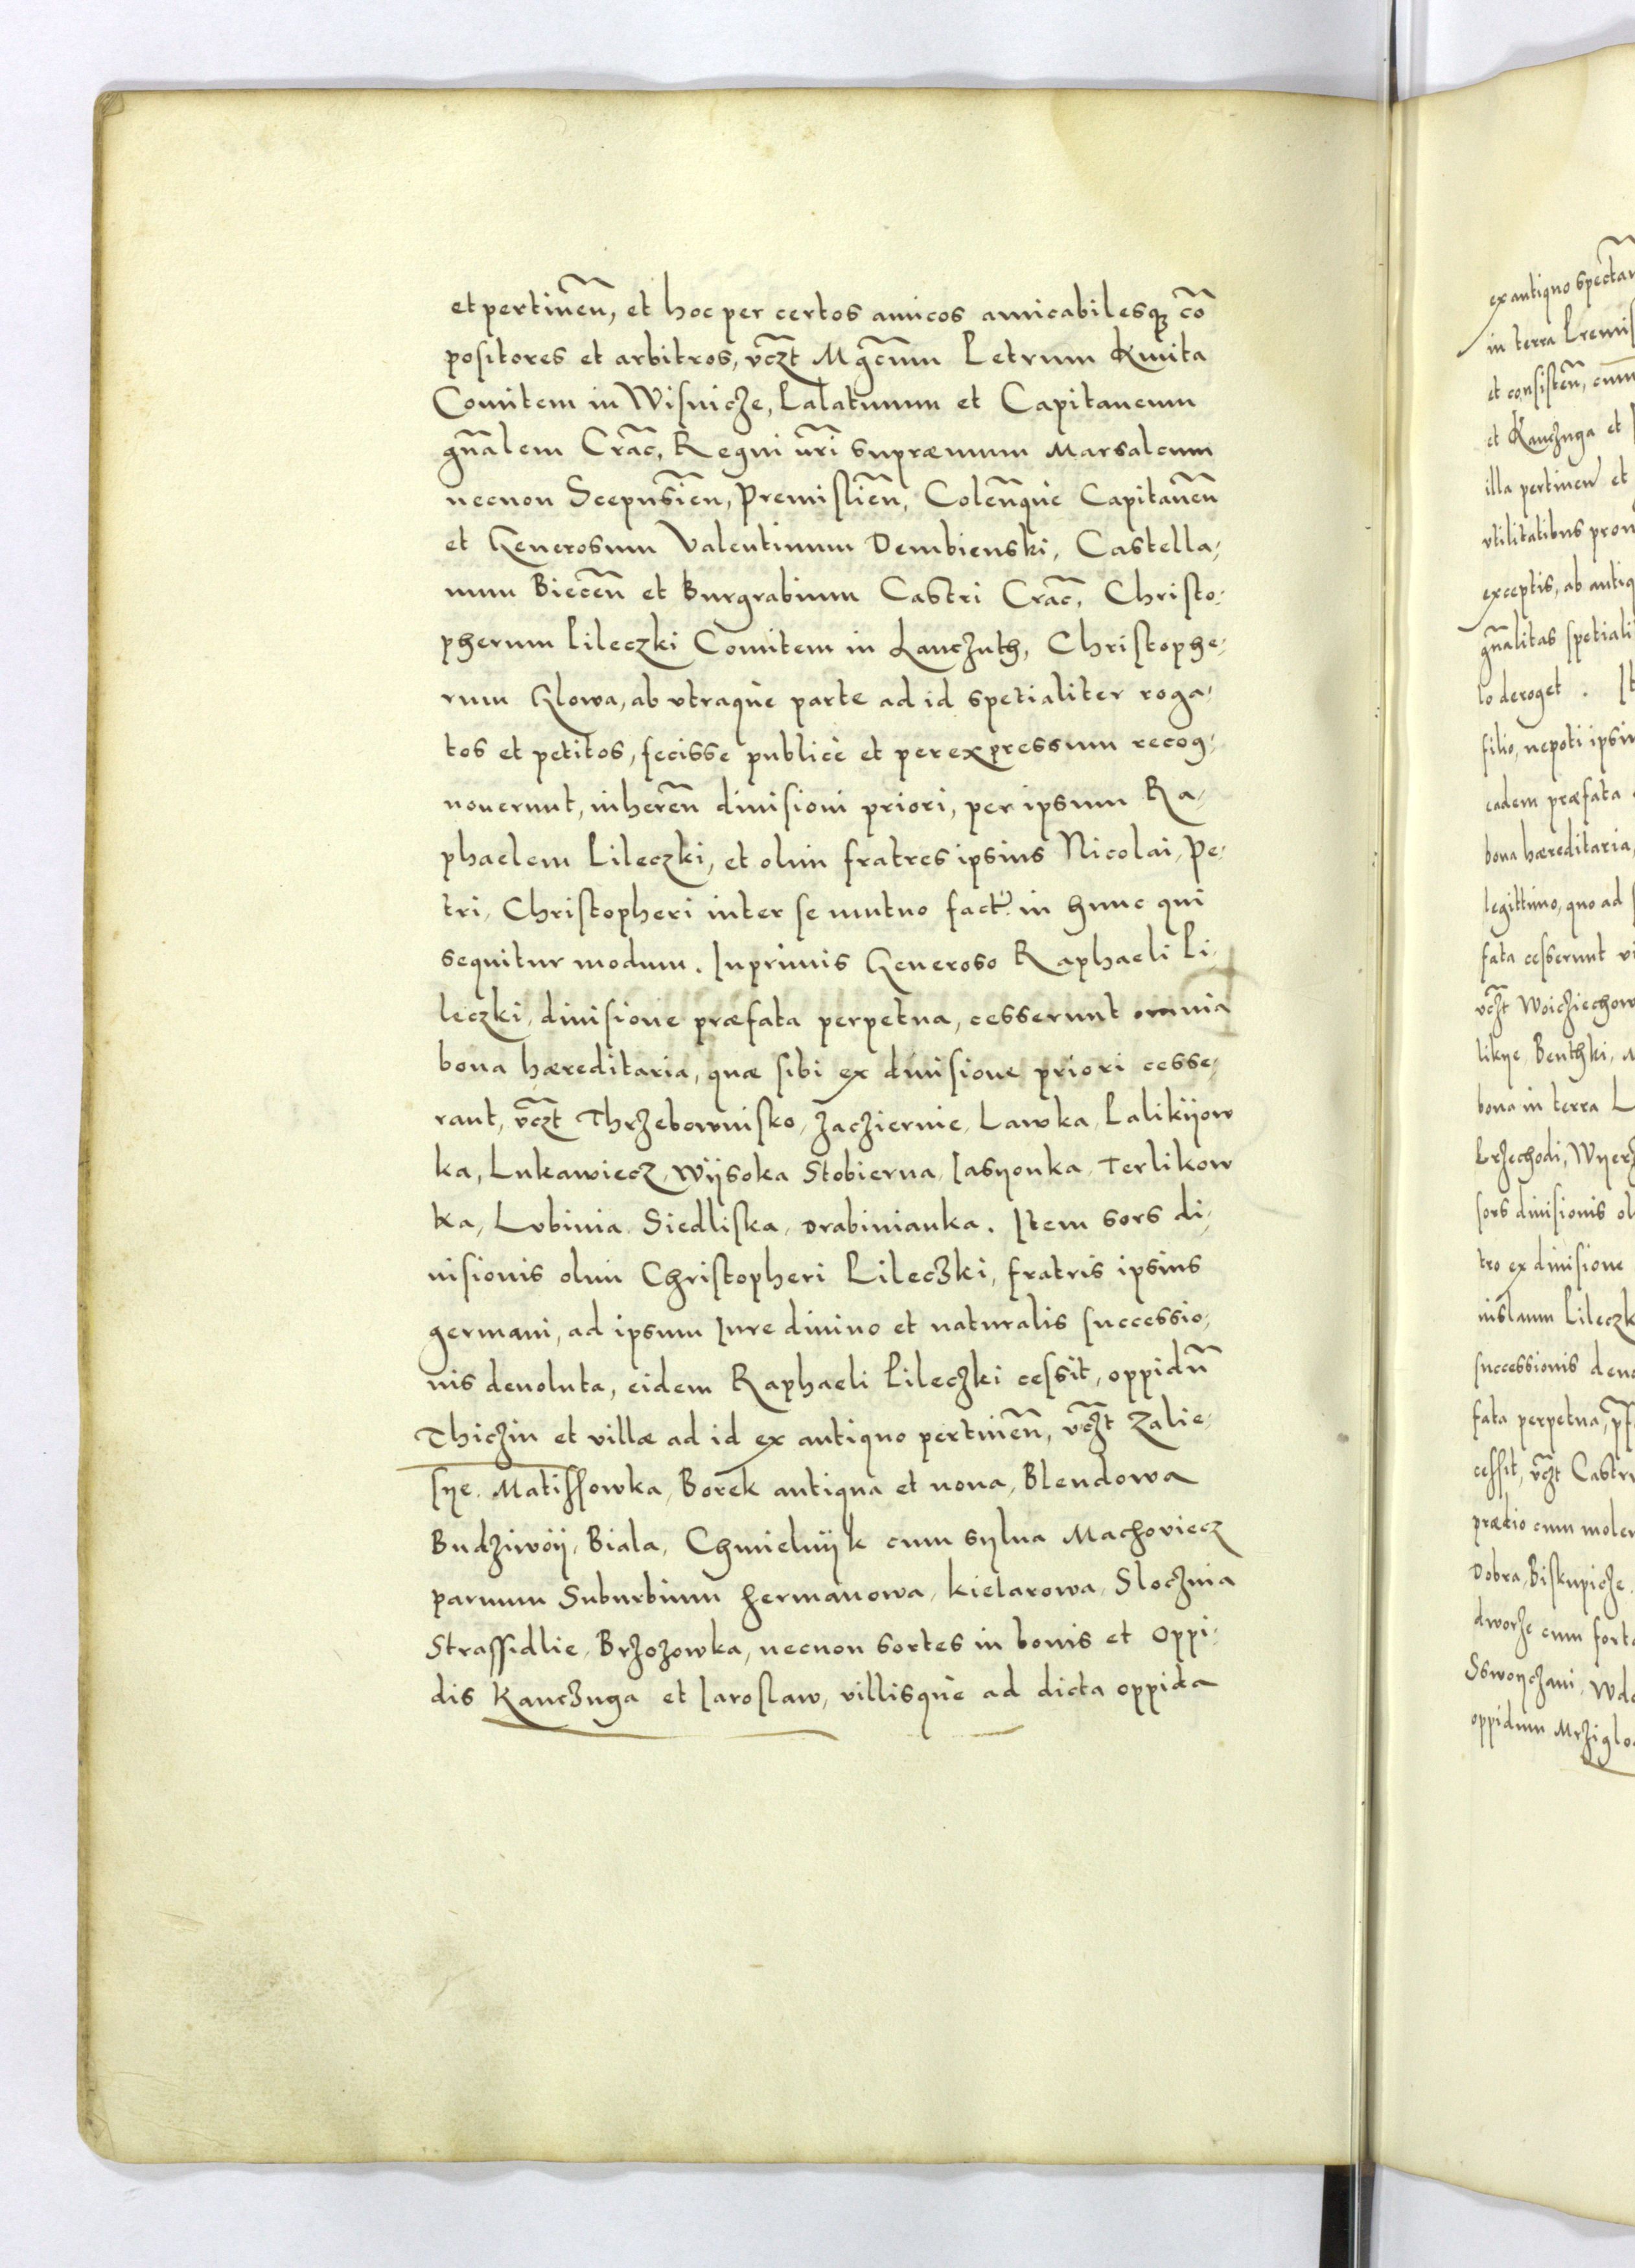 et pertineñ, et hoc per certos amicos amicabilesq; cõ
positores et arbitros, vczt Mgcum Petrum Kmita
Comitem in Wisnicze, Palatinum et Capitaneum
gñalem Crac̃, Regni nr̃i supræmum Marsalcum
necnon Scepusieñ, Premislieñ, Coleñque Capitaneũ
et Generosum Valentinum Dembienski, Castella,
num Bieceñ et Burgrabium Castri Crac̃, Christo,
pherum Pileczki Comitem in Lanczuth, Christophe,
rum Glowa, ab vtraque parte ad id spetialiter roga,
tos et petitos, fecisse publicè et per expressum recog,
nouerunt, inhereñ diuisioni priori, per ipsum Ra,
phaelem Pileczki, et olim fratres ipsius Nicolai, Pe,
tri, Christopheri inter se mutuo fact. in hunc qui
sequitur modum. Inprimis Generoso Raphaeli Pi,
leczki, diuisione præfata perpetua, cesserunt omnia
bona hæreditaria, quæ sibi ex diuisione priori cesse,
rant, vczt Thrzebownisko, Zacziernie, Lawka, Palikijow
ka, Lukawiecz, Wijsoka Stobierna, Iasyonka, Terlikow
ka, Lubinia Siedliska, Drabinianka. Item sors di,
uisionis olim Christopheri Pileczki, fratris ipsius
germani, ad ipsum Iure diuino et naturalis successio,
nis deuoluta, eidem Raphaeli Pileczki cessit, oppidũ
Thiczin et villæ ad id ex antiquo pertineñ, vczt Zalie,
sye, Matissowka, Borek antiqua et noua, Blendowa
Budziwoij, Biala, Chmielnijk cum sylua Machoviecz
paruum Suburbium Hermanowa, Kielarowa, Sloczina
Strassidlie, Brzozowka, necnon sortes in bonis et Oppi,
dis Kanczuga et Iaroslaw, villisque ad dicta oppida
ex antiquo
in terra
et consisteñ, cum
et Kanczuga et
illa pertineñ et
vtilitatibus
exceptis, ab
gñalitas
lo deroget. It
filio, nepoti
eadem præfata
bona hæreditaria,
legittimo, quo ad
fata cesserunt
vczt
likye, Benthki,
bona in terra
Przechodi,
sors diuisionis
tro ex diuisione
nislaum
successionis
fata perpetua,
cessit, vczt
prædio cum
Dobra, Biskupicze
dworze cum
Sswoyczani,
oppidum